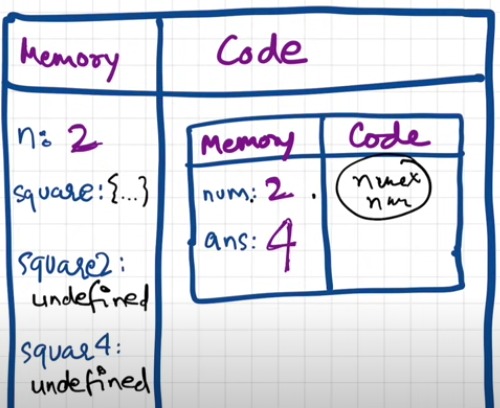 Memory
Code
n: 2
square: {...}
square2:
undefined
squar4:
undefined
Memory
Code
num: 2
ans: 4
num x
num